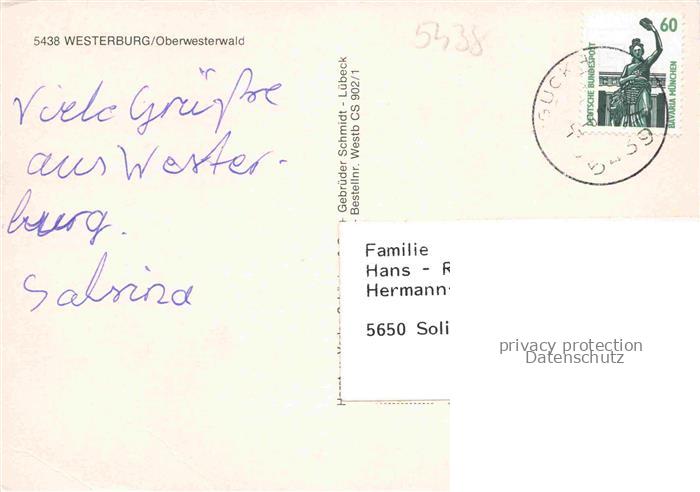 5438 WESTERBURG/Oberwesterwald
5438
60
DEUTSCHE BUNDESPOST
BAVARIA MÜNCHEN
5439
Viele Grüße
aus Wester-
burg.
Sabrina
Gebrüder Schmidt - Lübeck
- Bestellnr. Westb CS 902/1
Familie
Hans - R
Hermann-
5650 Soli
privacy protection
Datenschutz